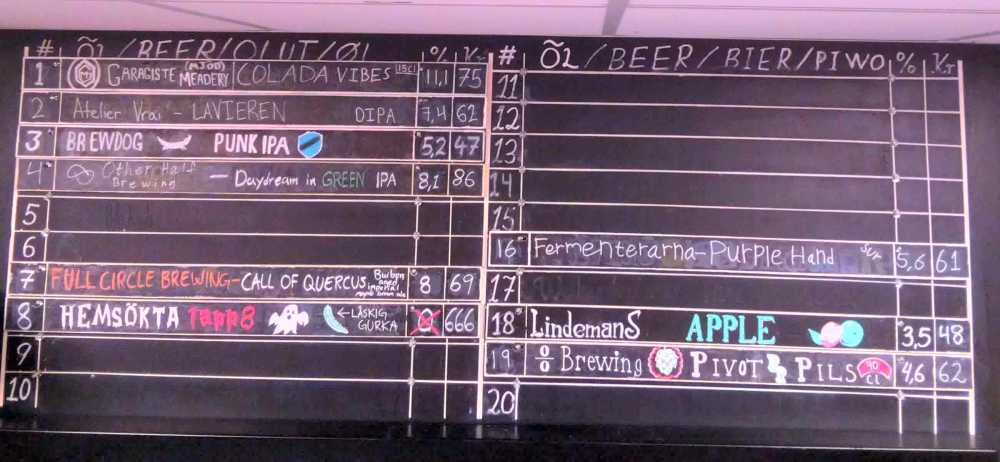 # ÕL/BEER/OLUT/ØL % Kr
1 GARAGISTE (MJÖD) MEADERY COLADA VIBES 15CL 11,1 75
2 Atelier Vrai - LAVIEREN DIPA 7,4 62
3 BREWDOG PUNK IPA 5,2 47
4 Other Half Brewing - Daydream in GREEN IPA 8,1 86
5
6
7 FULL CIRCLE BREWING - CALL OF QUERCUS Burbon aged imperial brown ale 8 69
8 HEMSÖKTA TAPP8 ←LÄSKIG GURKA 666
9
10
# ÕL/BEER/BIER/PIWO % Kr
11
12
13
14
15
16 Fermenterarna-Purple Hand 5,6 61
17
18 LindemanS APPLE 3,5 48
19 O/O Brewing PIVOT PILS 40 CL 4,6 62
20